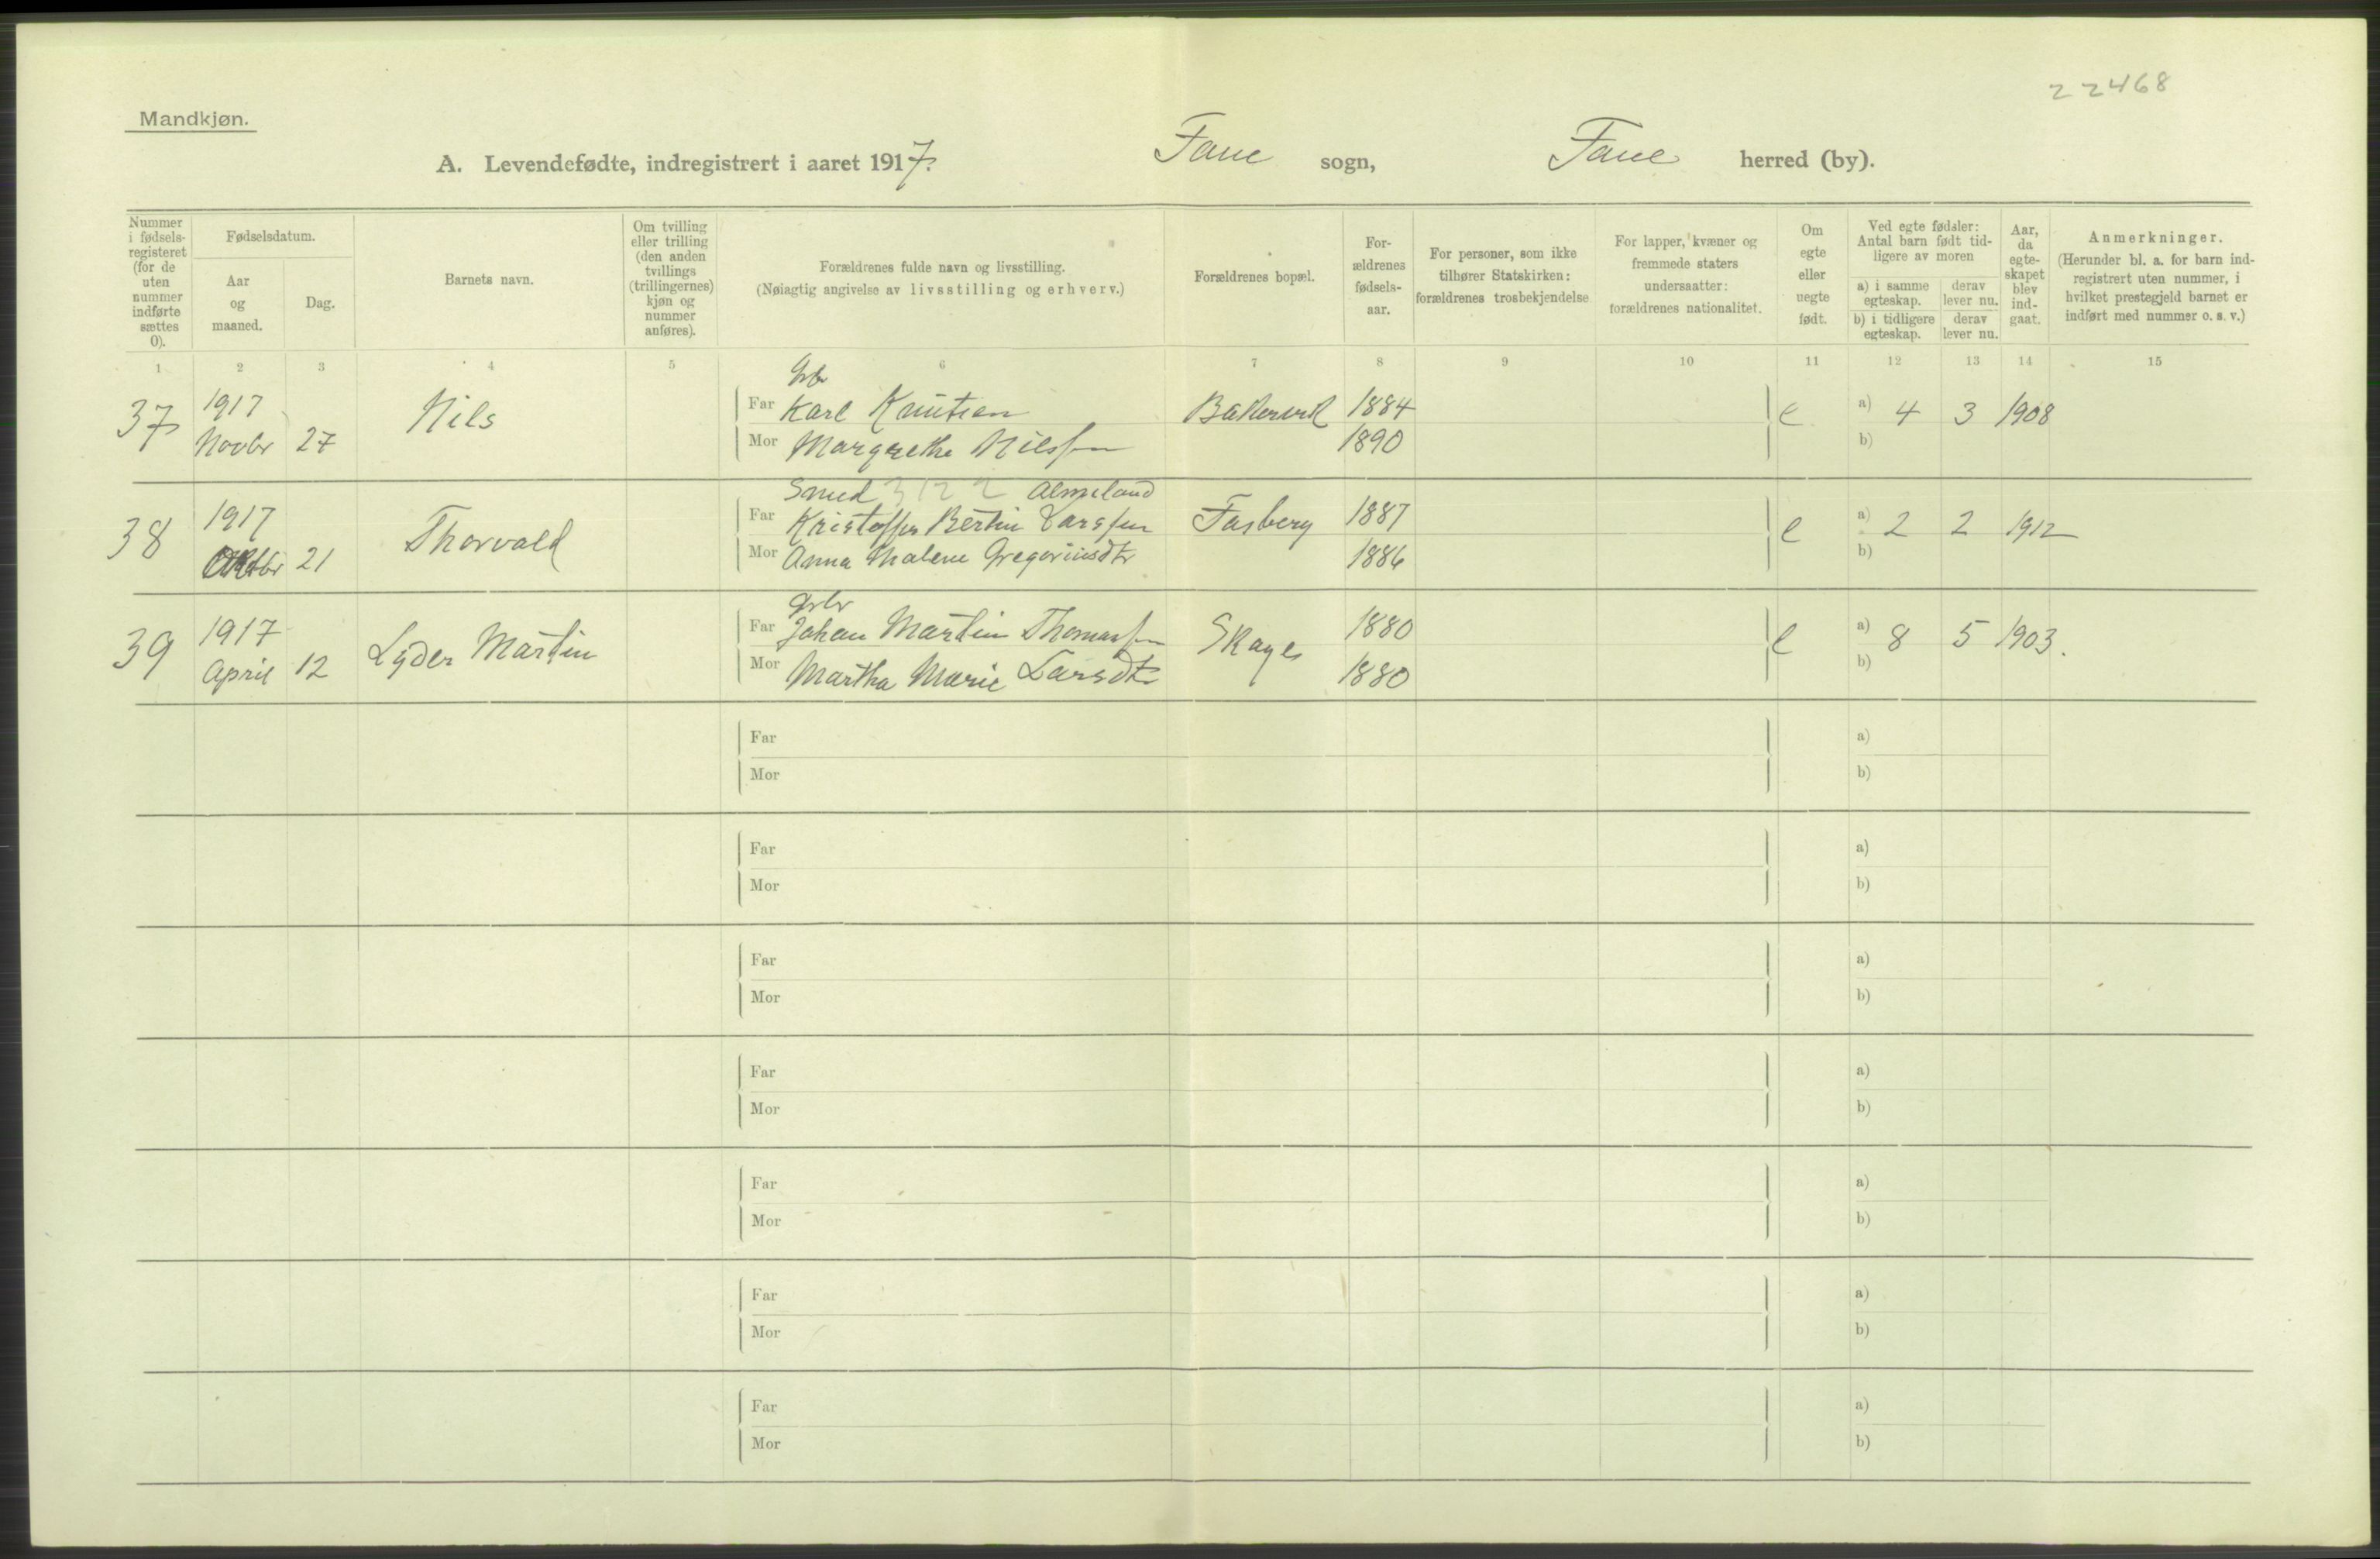 22468
Mandkjøn.
A. Levendefødte, indregistrert i aaret 1917. Fane sogn, Fane herred (by).
Nummer i fødsels-registeret (for de uten nummer indførte sættes 0).
Fødselsdatum.
Aar og maaned.
Dag.
Barnets navn.
Om tvilling eller trilling (den anden tvillings (trillingernes) kjøn og nummer anføres).
Forældrenes fulde navn og livsstilling.
(Nøiagtig angivelse av livsstilling og erhverv.)
Forældrenes bopæl.
For-ældrenes fødsels-aar.
For personer, som ikke tilhører Statskirken: forældrenes trosbekjendelse
For lapper, kvæner og fremmede staters undersaatter: forældrenes nationalitet.
Om egte eller uegte født.
Ved egte fødsler: Antal barn født tid-ligere av moren
a) i samme egteskap. derav lever nu.
b) i tidligere egteskap. derav lever nu.
Aar, da egte-skapet blev ind-gaat.
Anmerkninger.
(Herunder bl. a. for barn ind-registrert uten nummer, i hvilket prestegjeld barnet er indført med nummer o. s. v.)
1 2 3 4 5 6 7 8 9 10 11 12 13 14 15
Gbr
37 1917 Novbr 27 Nils Far Karl Knutsen 1884 e a) 4 3 1908
Mor Margrethe Nilssen 1890 b)
Smed 3122 Almeland
38 1917 Oktbr 21 Thorvald Far Kristoffer Bertin Larssen Fasberg 1887 e a) 2 2 1912
Mor Anna Malene Gregoriusdtr 1886 b)
Gbr
39 1917 April 12 Lyder Martin Far Johan Martin Thomassen Skage 1880 e a) 8 5 1903.
Mor Martha Marie Larsdtr 1880 b)
Far a)
Mor b)
Far a)
Mor b)
Far a)
Mor b)
Far a)
Mor b)
Far a)
Mor b)
Far a)
Mor b)
Far a)
Mor b)